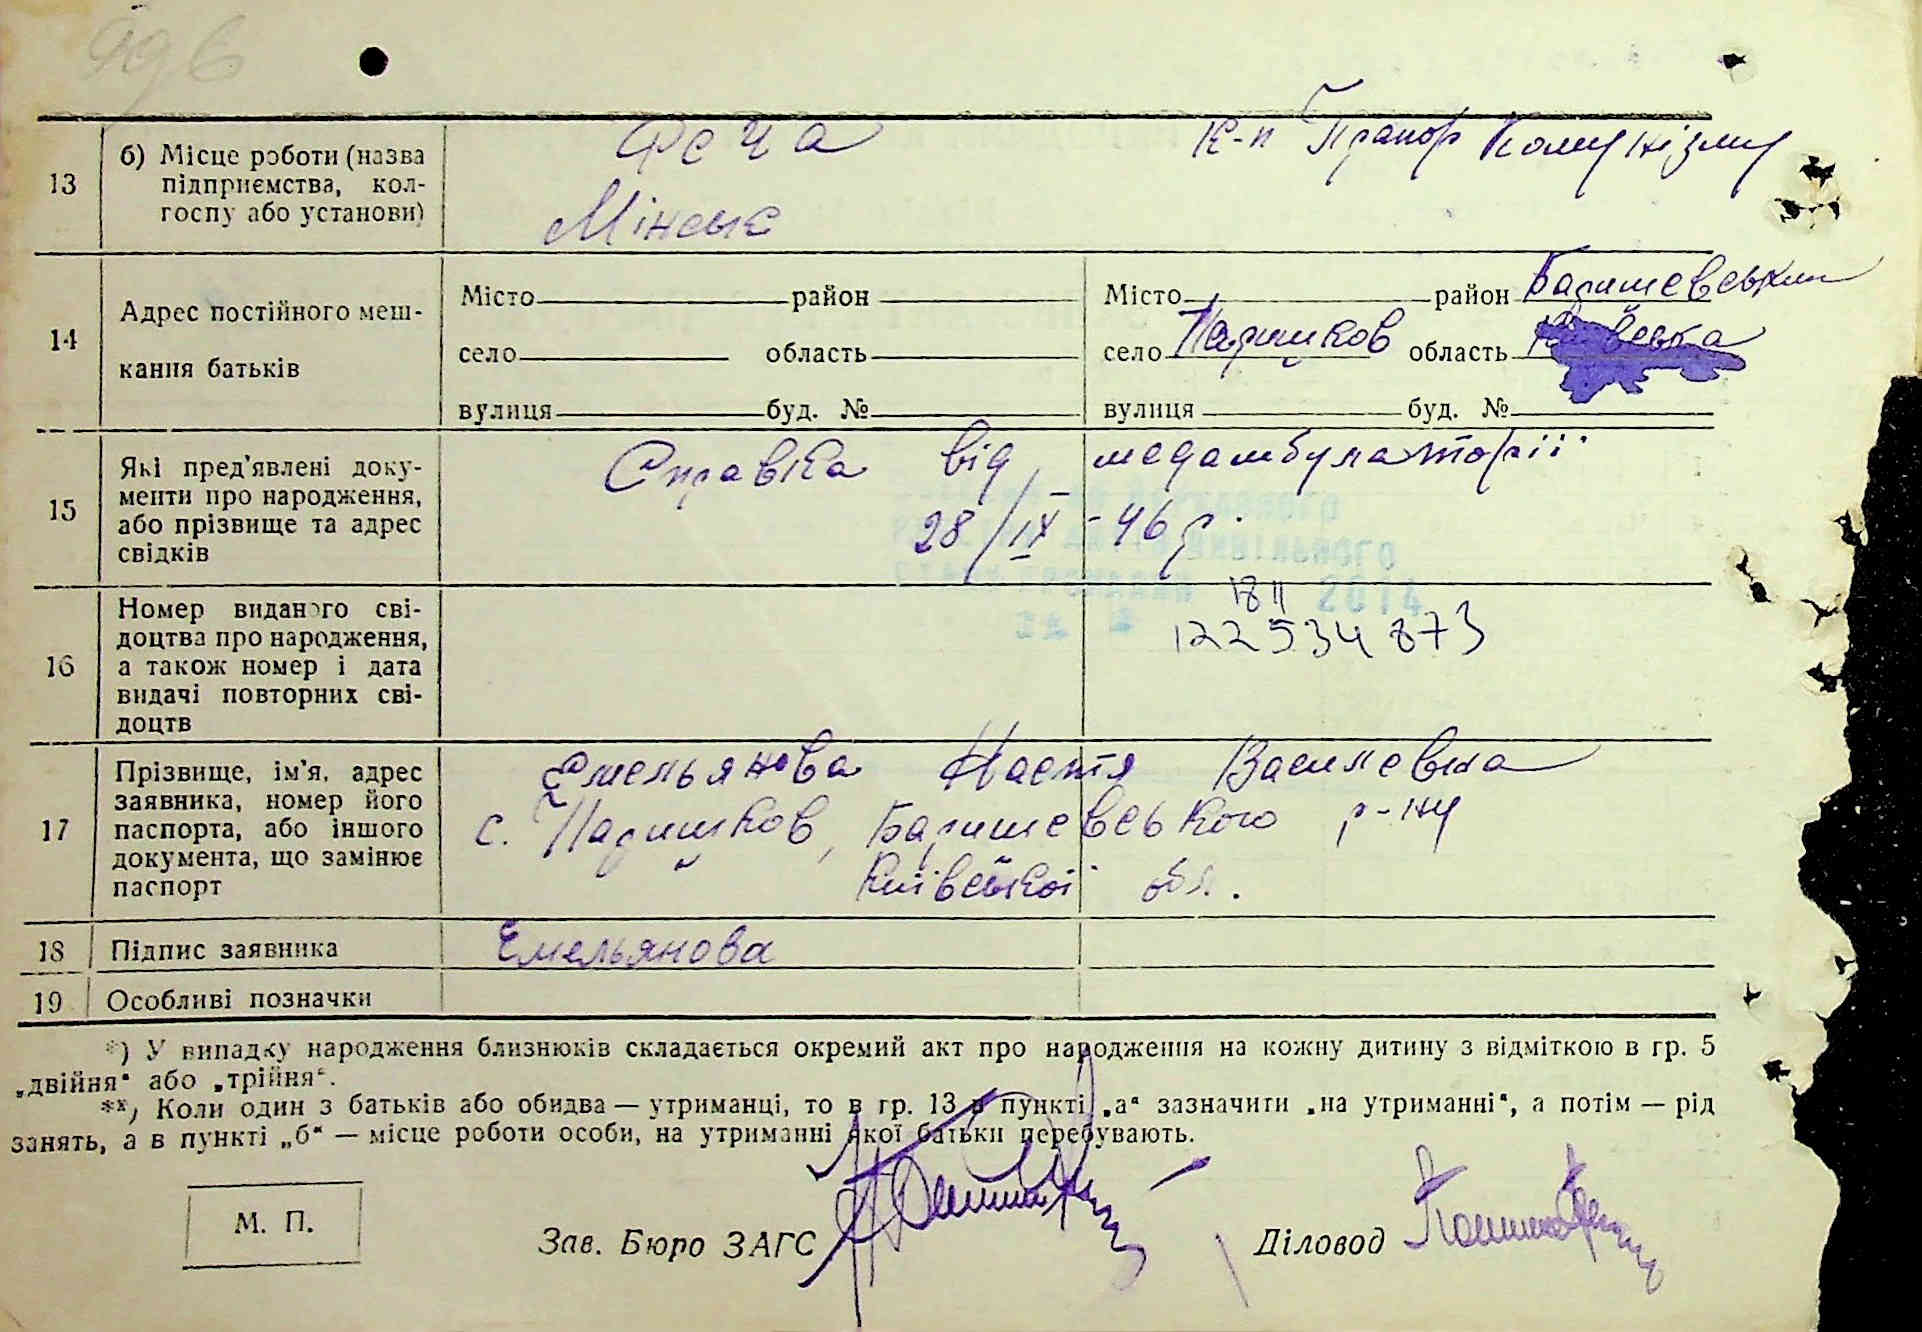 99 б
13 б) Місце роботи (назва підприємства, колгоспу або установи)
Мінськ
К-п Прапор Комунізму
14 Адрес постійного мешкання батьків
Місто район
село область
вулиця буд. №
Місто район Баришевський
село Паришков область Київська
вулиця буд. №
15 Які пред'явлені документи про народження, або прізвище та адрес свідків
Справка від медамбулаторії
28/IX - 46 р.
16 Номер виданого свідоцтва про народження, а також номер і дата видачі повторних свідоцтв
2014
122534873
17 Прізвище, ім'я, адрес заявника, номер його паспорта, або іншого документа, що замінює паспорт
Емельянова Настя Василевна
с. Паришков, Баришевського р-ну
Київської обл.
18 Підпис заявника Емельянова
19 Особливі позначки
*) У випадку народження близнюків складається окремий акт про народження на кожну дитину з відміткою в гр. 5
„двійня“ або „трійня“.
**) Коли один з батьків або обидва — утриманці, то в гр. 13 в пункті „а“ зазначити „на утриманні“, а потім — рід
занять, а в пункті „б“ — місце роботи особи, на утриманні якої батьки перебувають.
М. П.
Зав. Бюро ЗАГС
Діловод